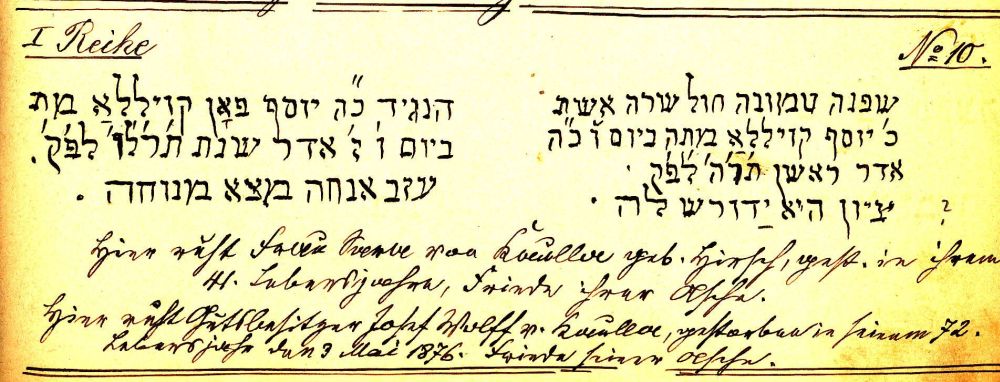 I Reihe
No 10.
שפנה טמונה חול שרה אשת
כ' יוסף קויללא מתה ביום ו' כ"ה
אדר ראשן ת'ר'ה' לפ'ק'.
ציון היא ידורש לה.
?
הנגיד כ"ה יוסף פאן קויללא מת
ביום ו' ז' אדר שנת ת'ר'ל'ו' לפ'ק'.
עזב אנחה מצא מנוחה.
Hier ruht Frau Sara von Kaulla geb. Hirsch, gest. in ihrem
41. Lebensjahre, Friede ihrer Asche.
Hier ruht Gutsbesitzer Josef Wolff v. Kaulla, gestorben in seinem 72.
Lebensjahr den 3 Mai 1876. Friede seiner Asche.